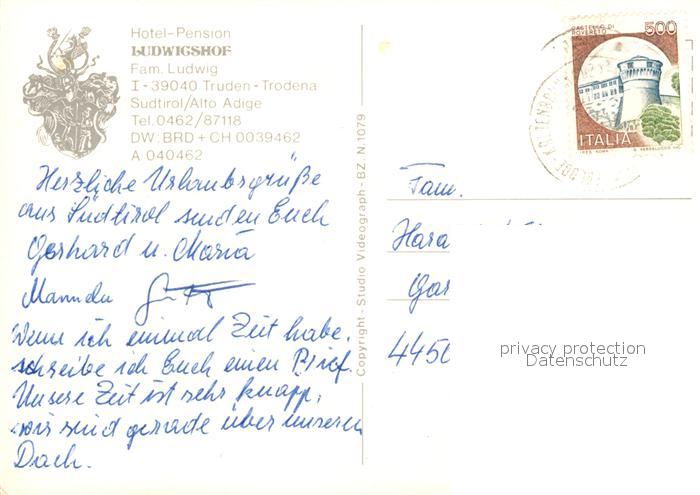 Hotel-Pension
LUDWIGSHOF
Fam. Ludwig
I-39040 Truden-Trodena
Südtirol/Alto Adige
Tel. 0462/87118
DW: BRD + CH 0039462
A 040462
Herzliche Urlaubsgrüße
aus Südtirol senden Euch
Gerhard u. Maria
Wenn ich einmal Zeit habe,
schreibe ich Euch einen Brief.
Unsere Zeit ist sehr knapp,
wir sind gerade über unserem
Dach.
Copyright - Studio Videograph - BZ N.1079
CASTELLO DI
ROVERETO
500
ITALIA
Fam.
Hara
Gar
4450
privacy protection
Datenschutz